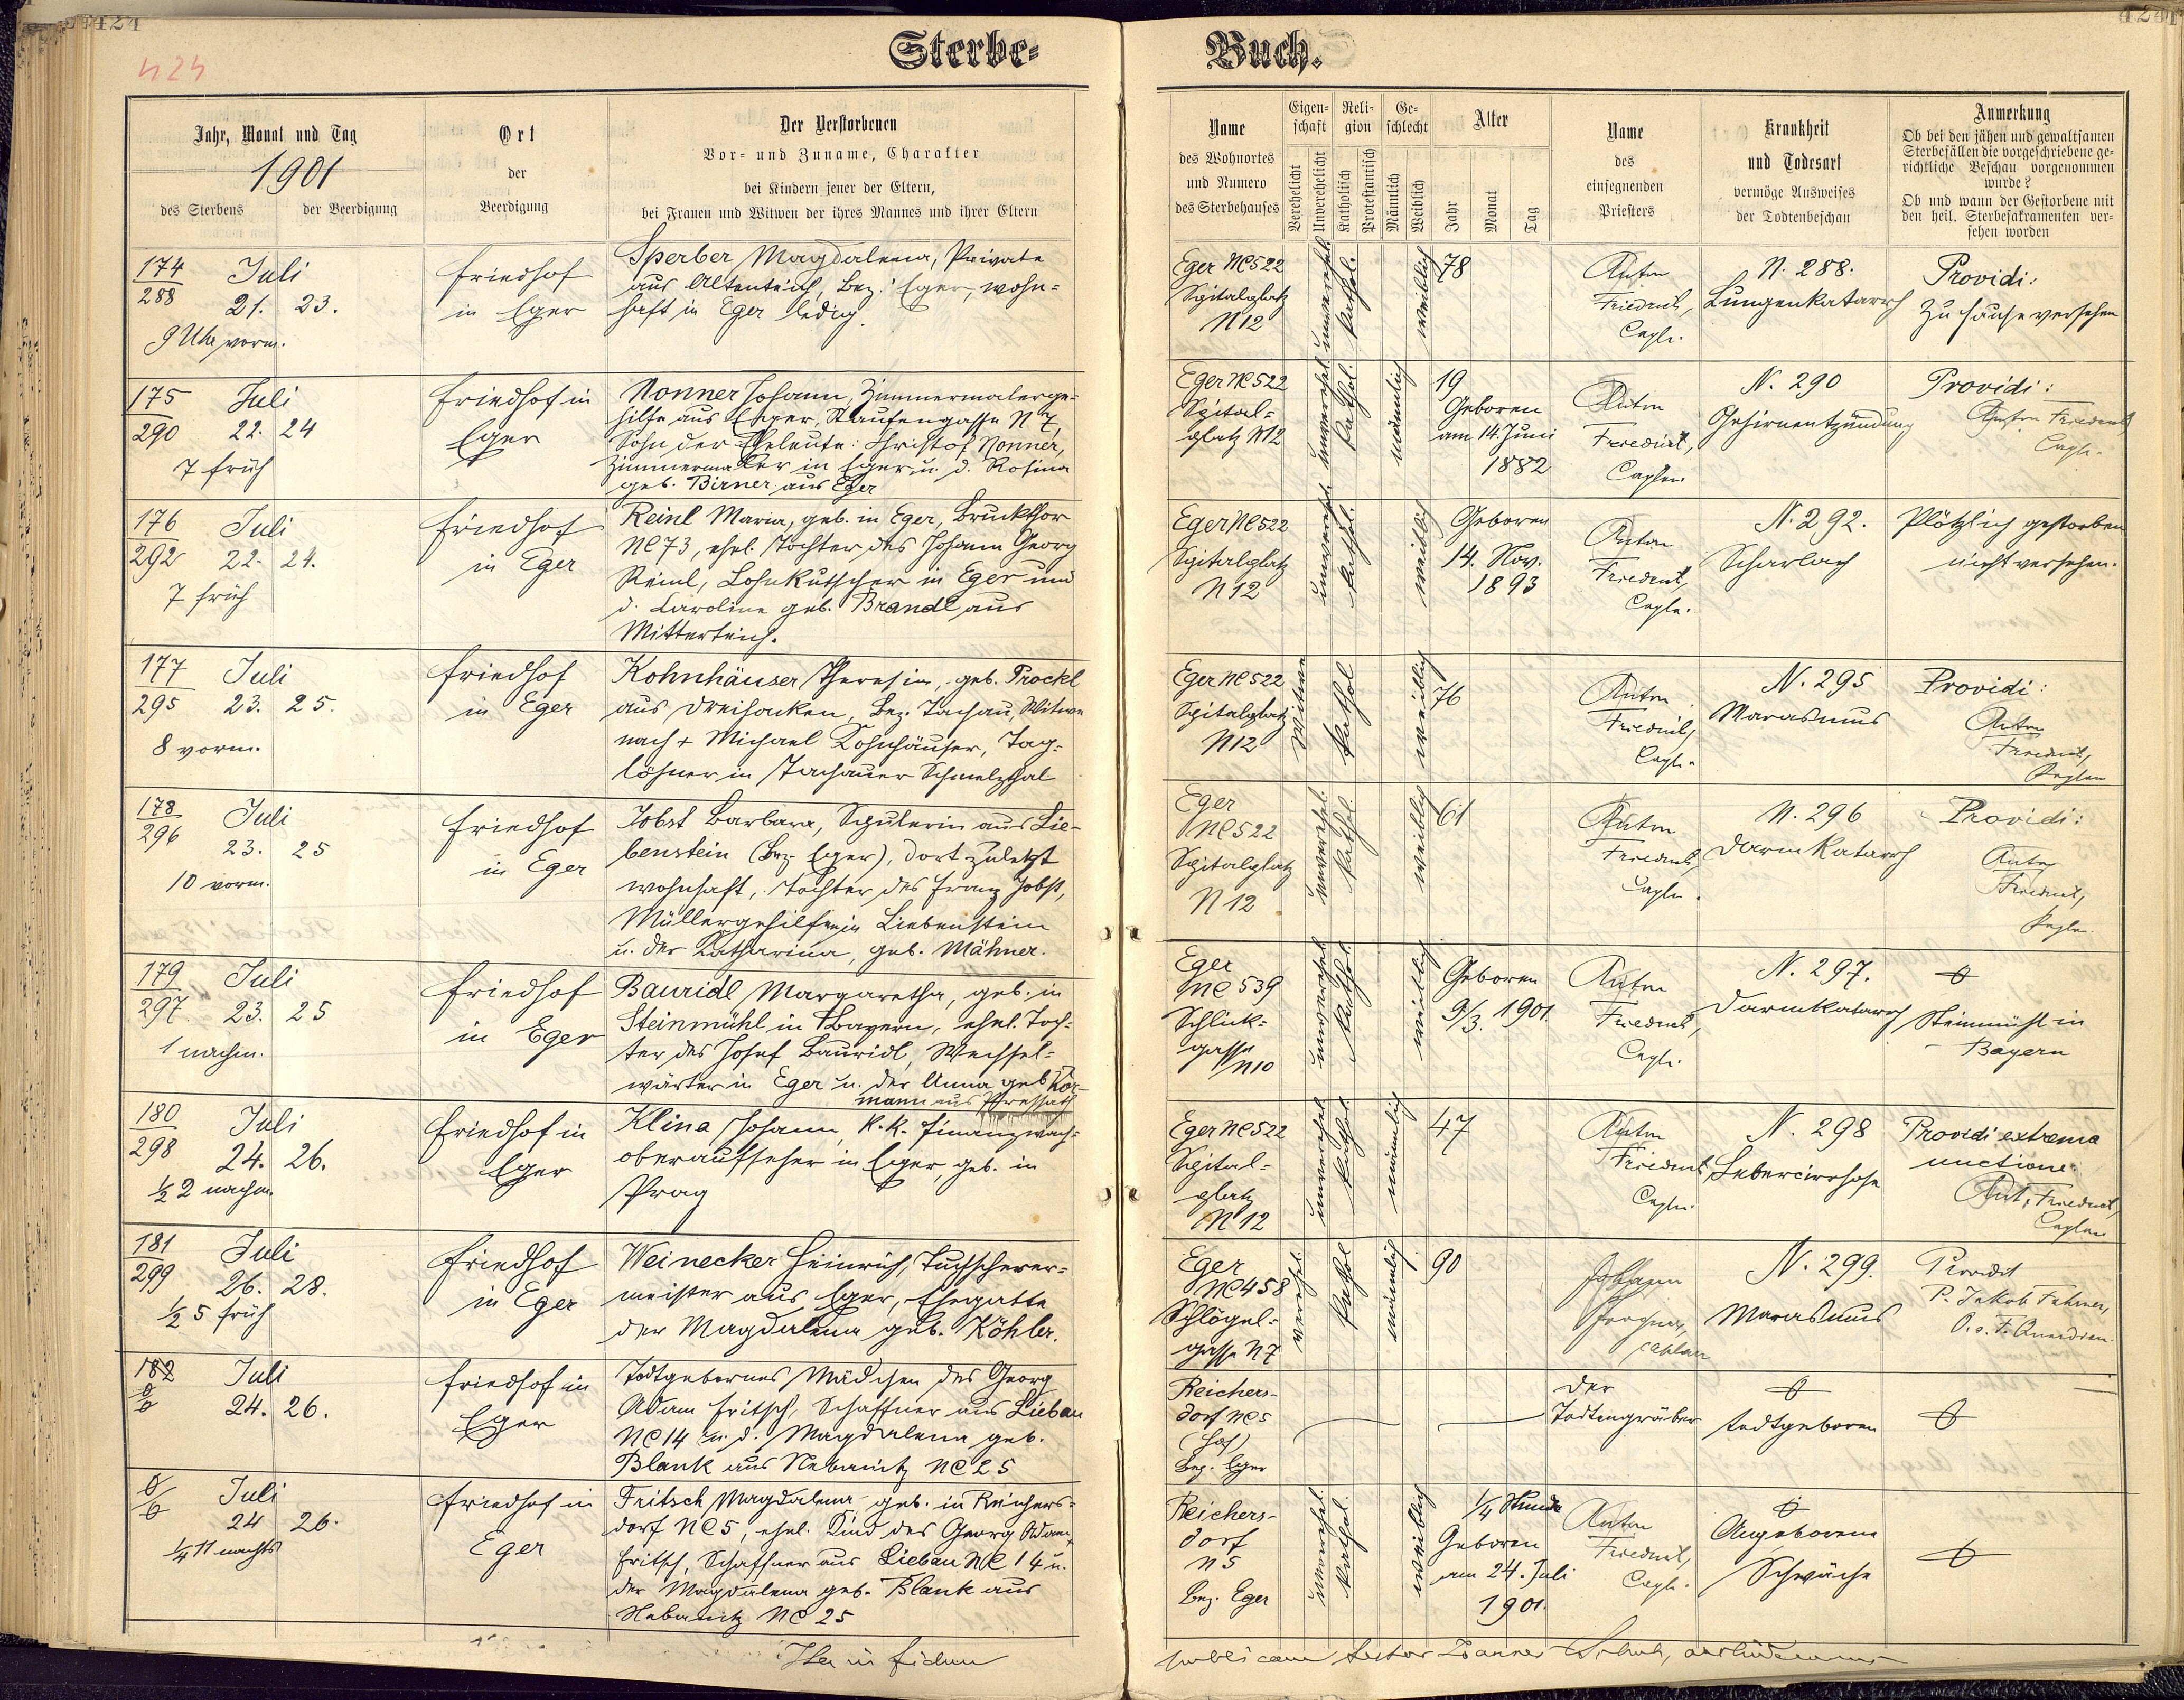 424
424
424
Sterbe-
Buch.
Jahr, Monat und Tag
1901
des Sterbens
der Beerdigung
Ort
der
Beerdigung
Der Verstorbenen
Vor- und Zuname, Charakter
bei Kindern jener der Eltern,
bei Frauen und Witwen der ihres Mannes und ihrer Eltern
Name
des Wohnortes
und Numero
des Sterbehauses
Eigen-
schaft
Verehelicht
Unverehelicht
Reli-
gion
Katholisch
Protestantisch
Ge-
schlecht
Männlich
Weiblich
Alter
Jahr
Monat
Tag
Name
des
einsegnenden
Priesters
Krankheit
und Todesart
vermöge Ausweises
der Todtenbeschau
Anmerkung
Ob bei den jähen und gewaltsamen
Sterbefällen die vorgeschriebene ge-
richtliche Beschau vorgenommen
wurde?
Ob und wann der Gestorbene mit
den heil. Sterbesakramenten ver-
sehen worden
174
288
Juli
21. 23.
9 Uhr vorm.
Friedhof
in Eger
Sperber Magdalena, Private
aus Altenteich, Bez. Eger, wohn-
haft in Eger ledig.
Eger NC522
Spitalplatz
N12
unverehel.
kathol.
weiblich
78
Anton
Friedrich,
Capln.
N. 288.
Lungenkatarrh
Providi:
Zu Hause versehen
175
290
Juli
22. 24
7 früh
Friedhof in
Eger
Nonner Johann, Zimmermalerge-
hilfe aus Eger, Staufengasse N 7,
Sohn der Eheleute: Christof Nonner,
Zimmermaler in Eger u. d. Rosina
geb. Birner aus Eger
Eger NC522
Spital-
platz N12
unverehel.
kathol.
männlich
19
Geboren
am 14. Juni
1882
Anton
Friedrich,
Caplan
N. 290
Gehirnentzündung
Providi:
Anton Friedrich,
Capln.
176
292
Juli
22. 24.
7 früh
Friedhof
in Eger
Reinl Maria, geb. in Eger, Bruckthor
NC73, ehel. Tochter des Johann Georg
Reinl, Lohnkutscher in Eger und
d. Karoline geb. Brandl aus
Mitterteich.
Eger NC522
Spitalplatz
N12
unverehel.
kathol.
weiblich
Geboren
14. Nov.
1893
Anton
Friedrich,
Capln.
N. 292.
Scharlach
Plötzlich gestorben
nicht versehen.
177
295
Juli
23. 25.
8 vorm.
Friedhof
in Eger
Kohnhäuser Theresia, geb. Prockl
aus Dreihacken, Bez. Tachau, Witwe
nach + Michael Kohnhäuser, Tag-
löhner in Tachauer Schmelzthal
Eger NC522
Spitalplatz
N12
Witwe
kathol
weiblich
76
Anton
Friedrich,
Capln.
N. 295
Marasmus
Providi:
Anton
Friedrich,
Caplan
178
296
Juli
23. 25
10 vorm.
Friedhof
in Eger
Jobst Barbara, Spulerin aus Lie-
benstein (Bez. Eger), dort zuletzt
wohnhaft, Tochter des Franz Jobst,
Müllergehilfe in Liebenstein
u. der Katharina, geb. Mähner.
Eger
NC522
Spitalplatz
N12
unverehel.
kathol.
weiblich
61
Anton
Friedrich,
Capln.
N. 296
Darmkatarrh
Providi:
Anton
Friedrich,
Capln.
179
297.
Juli
23. 25
1 nachm.
Friedhof
in Eger
Bauridl Margaretha, geb. in
Steinmühl in Bayern, ehel. Toch-
ter des Josef Bauridl, Wechsel-
wärter in Eger u. der Anna geb. Kör-
mann aus Pressath
Eger
NC 539
Schlick-
gasse
N10
unverehel
kathol.
weiblich
Geboren
9/3. 1901.
Anton
Friedrich,
Capln.
N. 297.
Darmkatarrh
Steinmühl in
Bayern
180
298
Juli
24. 26.
1/2 2 nachm.
Friedhof in
Eger
Klina Johann, k.k. Finanzwach-
oberaufseher in Eger, geb. in
Prag
Eger NC522
Spital-
platz
N12
unverehel
kathol.
männlich
47
Anton
Friedrich
Capln.
N. 298
Lebercirrhose
Providi extrema
unctione
Ant. Friedrich,
Caplan
181
299
Juli
26. 28.
1/2 5 früh
Friedhof
in Eger
Weinecker Heinrich, Tuchscherer-
meister aus Eger, Ehegatte
der Magdalena geb. Köhler.
Eger
NC458
Schlögel-
gasse N7
verehel.
kathol
männlich
90
Johann
Caplan
N. 299.
Marasmus
Providit
P. Jakob Fahrner,
182
Juli
24. 26.
Friedhof in
Eger
Todtgebornes Mädchen des Georg
Adam Fritsch, Schaffner aus Liebau
NC14 u. d. Magdalena geb.
Blank aus Nebanitz NC 25
Reichers-
dorf NC5
(Hof)
Bez. Eger
Der
Todtengräber
todtgeboren
Juli
24 26.
1/4 11 nachts
Friedhof in
Eger
Fritsch Magdalena, geb. in Reichers-
dorf NC5, ehel. Kind des Georg Adam
Fritsch, Schaffner aus Liebau NC 14 u.
der Magdalena geb. Blank aus
Nebanitz NC 25
Reichers-
dorf
N5
Bez. Eger
unverehel.
kathol.
weiblich
1/4 Stunde
Geboren
am 24. Juli
1901.
Anton
Friedrich,
Capln.
Angeborene
Schwäche
in fidem